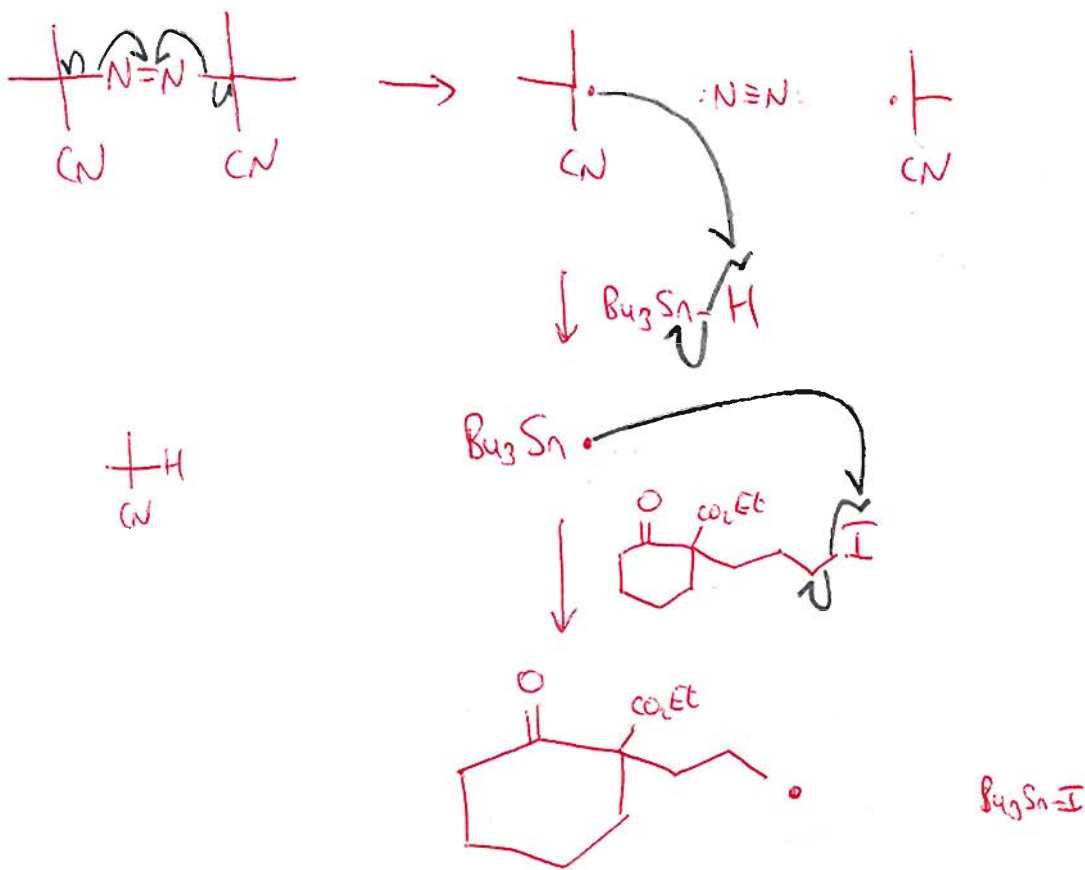 N=N
CN CN
:N≡N:
CN CN
Bu3Sn-H
Bu3Sn•
H
CN
O
CO2Et
I
O
CO2Et
Bu3Sn-I